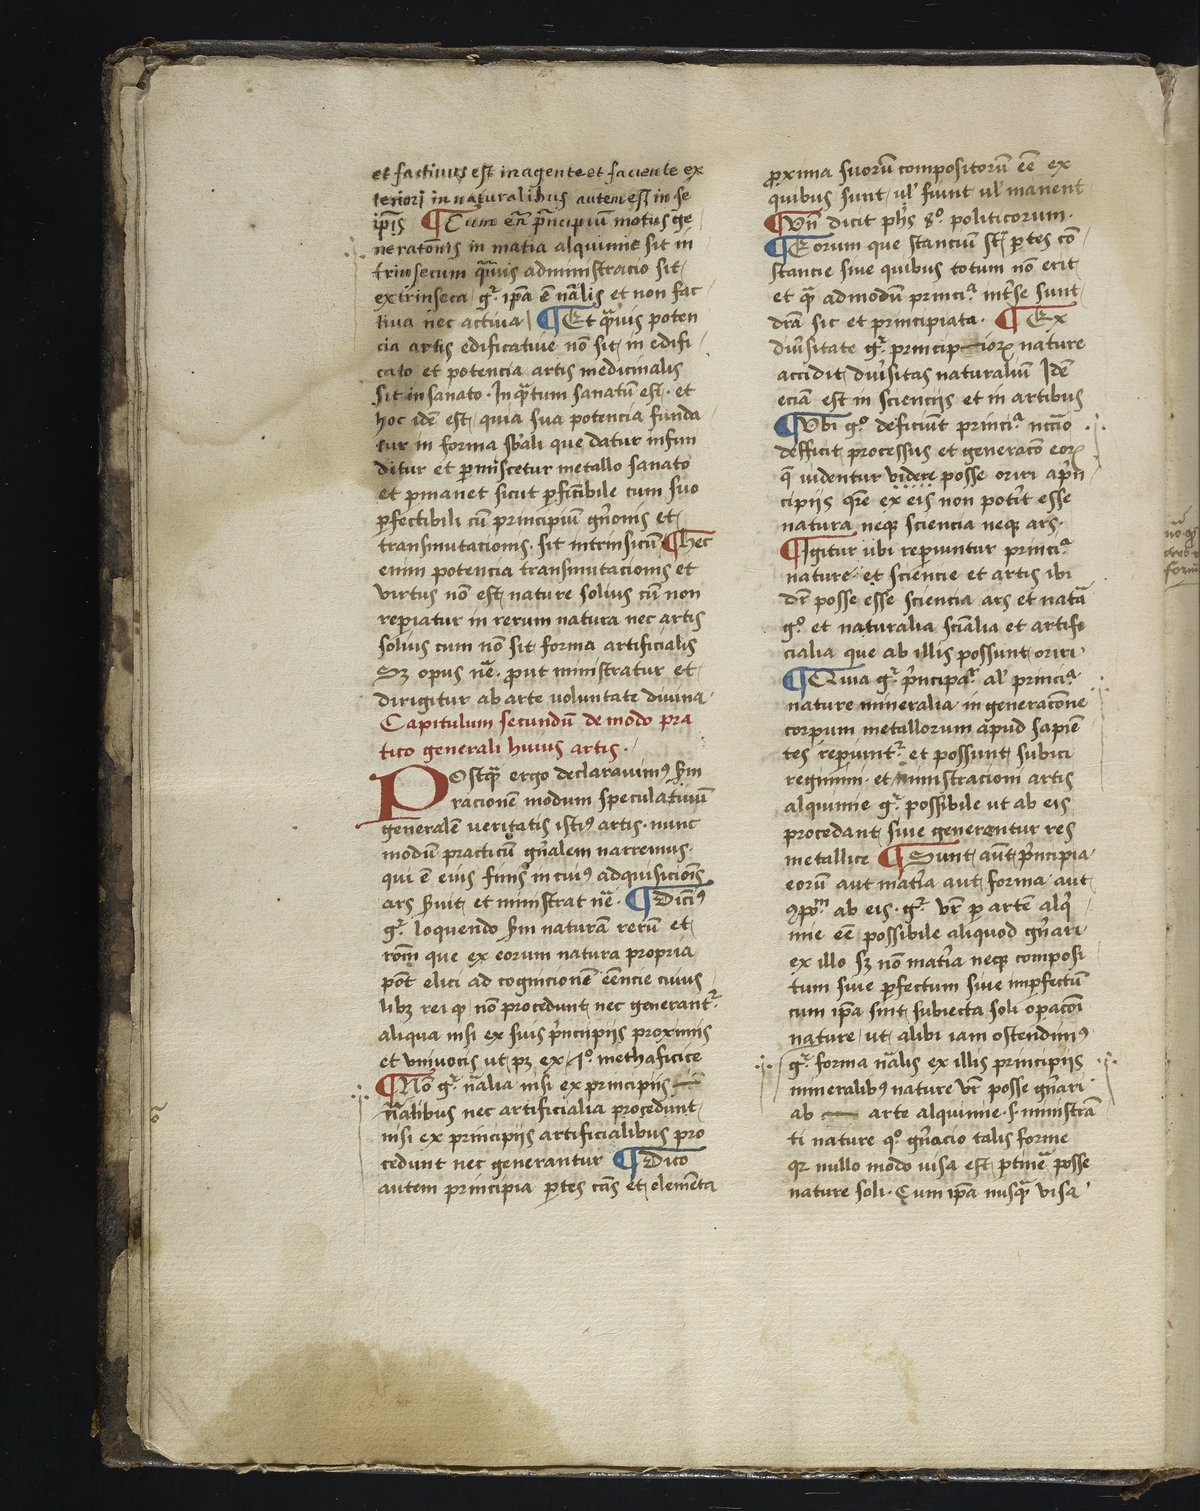 et factiuus est in agente et faciente ex
teriori in naturalibus autem est in se
ip̄is ¶ Cum em̄ p̄ncipiū motus ge
neratōnis in matīa alquimie sit in
trinsecum quāuis administracio sit
extrinseca gͬ ip̄a ē nālis et non fac
tiua nec actiua ¶ Et quāuis poten
cia artis edificatiue nō sit in edifi
cato et potencia artis medicinalis
sit in sanato · In quātum sanatū est · et
hoc idē est quia sua potencia funda
tur in forma sb̄ali que datur infun
ditur et ꝑmiscetur metallo sanato
et ꝑmanet sicut ꝑfictibile cum suo
ꝑfectibili cū principiū gn̄onis et
transmutacionis · sit intrinsicū ¶ hec
enim potencia transmutacionis et
virtus nō est nature solius cū non
reꝑiatur in rerum natura nec artis
solius cum nō sit forma artificialis
Sꝫ opus nē · ꝓut ministratur et
dirigitur ab arte voluntate diuina ·
Capitulum secundū de modo pra
tico generali huius artis ·
POstquā ergo declarauimꝰ sm̄
racionē modum speculatiuū
generalē veritatis istiꝰ artis · nunc
modū practicū gn̄alem narremus ·
qui ē eius finis in cuiꝰ adquisicioīs
ars s̄uit et ministrat nē · ¶ Dicimꝰ
gͬ loquendo sm̄ naturā rerū et
rōm̄ que ex eorum natura propria
pōt elici ad cognicionē eēncie cuius
libꝫ rei ꝙ nō procedunt nec generantͬ
aliqua nisi ex suis p̄ncipiis proximis
et vniuocis ut pꝫ ex 1º methafisice
¶ Nō gͬ nālia nisi ex principiis
nālibus nec artificialia procedunt
nisi ex principiis artificialibus pro
cedunt nec generantur ¶ Dico
autem principia ꝑtes cās et elementa
ꝓxima suorū compositorū eē ex
quibus sunt ul' fiunt ul' manent
¶ Vn̄ dicit ph̄s 8º politicorum ·
¶ Eorum que stanciū st̄ ꝑtes cō
stancie siue quibus totum nō erit
et quē admodū princiᵃ int̄se sunt
dr̄a sic et principiata · ¶ Ex
diu̓sitate gͬ principiorꝫ nature
accidit diu̓sitas naturaliū Idē
eciam est in scienciis et in artibus
¶ Vbi gº deficiūt princiᵃ nccīo
defficit processus et generacō eorꝫ
q̄ uidentur videre posse oriri a pn̄
cipiis qr̄e ex eis non potīt esse
natura neqꝫ sciencia neqꝫ ars ·
¶ Igitur ubi reꝑiuntur princiᵃ
nature · et sciencie et artis ibi
dr̄ posse esse sciencia ars et natā
gº et naturalia scīalia et artifi
cialia que ab illis possunt oriri ·
¶ Quia gͬ p̄ncipaͬ al' princiᵃ
nature mineralia in generacōne
corpum metallorum apud sapiē
tes reꝑiuntͬ et possunt subici
regimini · et ministracioni artis
alquimie gͬ possibile ut ab eis
procedant siue generentur res
metallice ¶ Sunt aūt p̄ncipia
eorū aut matīa aut forma aut
ꝯpoᵐ ab eis · gͬ vr̄ ꝑ artē alqi
mie eē possibile aliquod gn̄ari
ex illo sꝫ nō matīa neqꝫ composi
tum siue ꝑfectum siue imꝑfectū
cum ip̄a sint subiecta soli oꝑacōi
nature ut alibi iam ostendimꝰ
gͬ forma nālis ex illis principiis
mineralibꝰ nature vr̄ posse gn̄ari
ab arte alquimie · s· ministrā
ti nature qº gn̄acio talis forme
qꝛ nullo modo uisa est ꝑtinē posse
nature soli · Cum ip̄a nusquā visa